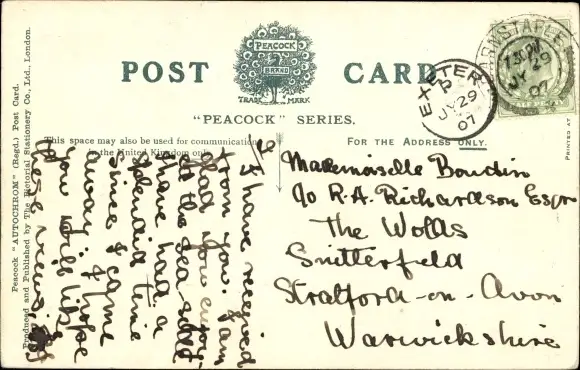 POST CARD
PEACOCK
BRAND
TRADE MARK
"PEACOCK" SERIES.
This space may also be used for communication
in the United Kingdom only.
FOR THE ADDRESS ONLY.
PRINTED AT
Peacock "AUTOCHROM" (Regd.) Post Card.
Produced and Published by The Pictorial Stationery Co., Ltd., London.
BARNSTAPLE
7.30PM
JY 29
07
EXETER
P
JY 29
07
I have received
from you. I am
glad you enjoy
ed the sea-side
I have had a
splendid time
since I came
away. I hope
you will like
these views.
Mademoiselle Boudin
c/o R. A. Richardson Esqr
The Wolds
Snitterfield
Stratford-on-Avon
Warwickshire